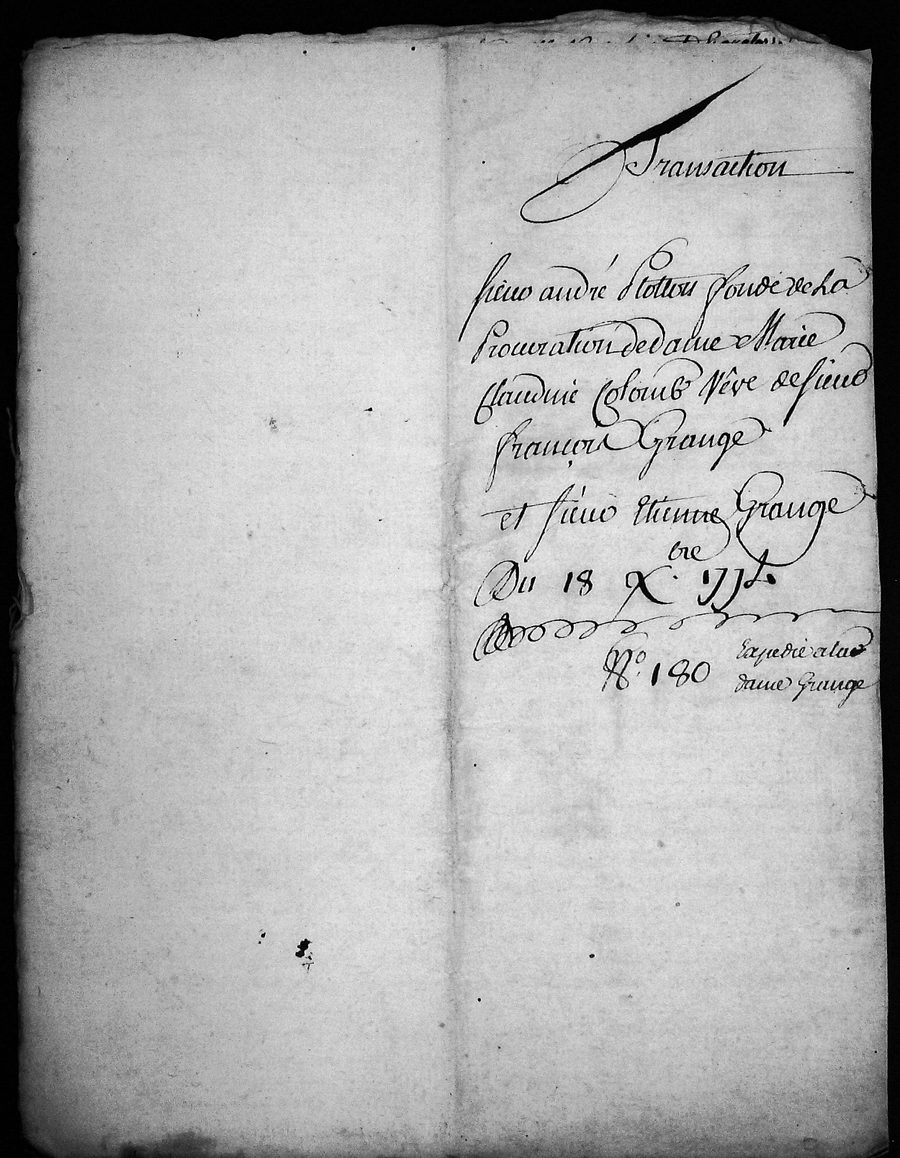 Transaction
sieur andré Plotton fondé de La
Procuration de dame Marie
Claudine Colomb Vêve de sieur
françois Grange
et sieur Etienne Grange
Du 18 Xbre 1774.
N.º 180
Expedié a la
dame Grange